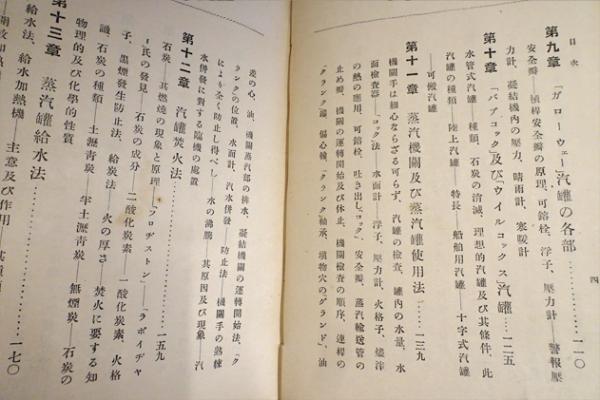 目次
四
第九章 「ガローウェー」汽罐の各部……一一〇
安全瓣――槓桿安全瓣の原理、可鎔栓、浮子、壓力計――警報壓
力計、凝結機內の壓力、晴雨計、寒暖計
第十章 「バブコック」及び「ウイルコックス」汽罐……一二五
水管式汽罐――種類、石炭の消滅、理想的汽罐及び其條件、此
汽罐の種類――陸上汽罐――特長――船舶用汽罐――十字式汽罐
――可搬汽罐
第十一章 蒸汽機關及び蒸汽罐使用法……一三九
機關手は細心ならざる可らず、汽罐の檢査、罐內の水量、水
面檢査器――「コック」法――水面計――浮子、壓力計、火格子、燼滓
の熱の應用、可鎔栓、吐き出し「コック」、安全瓣、蒸汽輸送管の
止め瓣、機關の運轉開始及び休止、機關檢査の順序、連桿の
「クランク」端、偏心輪、「クランク」軸承、塡物穴の「グランド」、油
差の心、油、機關蒸汽部の排水、凝結機關の運轉開始法、「ク
ランク」の位置、水面計、汽水併發――防止法――機關手の熟練
により全く防止し得べし――水の沸騰――其原因及び現象――汽
水併發に對する臨機の處置
第十二章 汽罐焚火法……一五九
石炭――其燃燒の現象と原理――「フロヂストン」――「ラボイヂャ
ー」氏の發見――石炭の成分――二酸化炭素――一酸化炭素、火格
子、黑煙發生防止法、給炭法――火の厚さ――焚火に要する知
識、石炭の種類――土瀝靑炭――半土瀝靑炭――無煙炭――石炭の
物理的及び化學的性質
第十三章 蒸汽罐給水法……一七〇
給水法、給水加熱機――主意及び作用